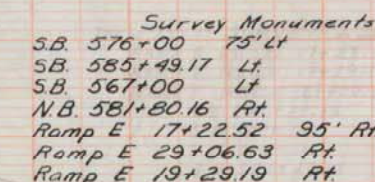 Survey Monuments
S.B. 576+00 75' Lt
S.B. 585+49.17 Lt.
S.B. 567+00 Lt
N.B. 581+80.16 Rt.
Ramp E 17+22.52 95' Rt
Ramp E 29+06.63 Rt.
Ramp E 19+29.19 Rt.